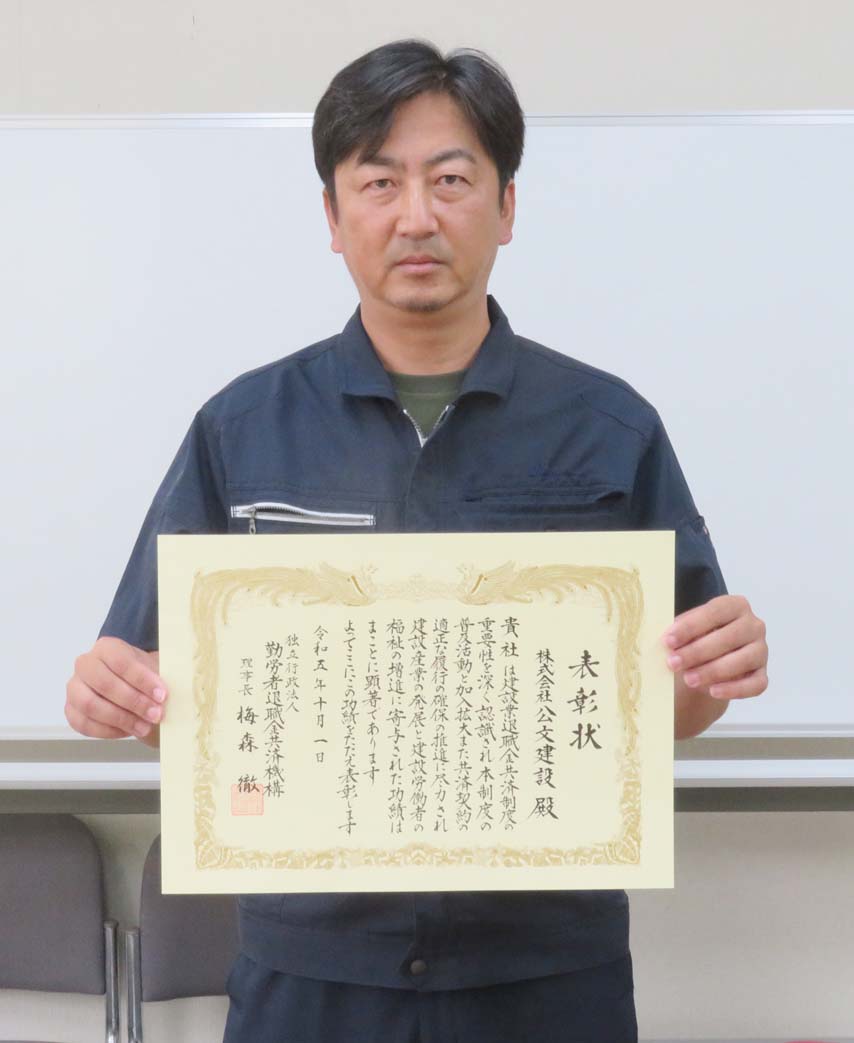 表彰状
株式会社公文建設 殿
貴社は建設業退職金共済制度の
重要性を深く認識され本制度の
普及活動と加入拡大また共済契約の
適正な履行の確保の推進に尽力され
建設産業の発展と建設労働者の
福祉の増進に寄与された功績は
まことに顕著であります
よってここにこの功績をたたえ表彰します
令和五年十月一日
独立行政法人
勤労者退職金共済機構
理事長 梅森 徹